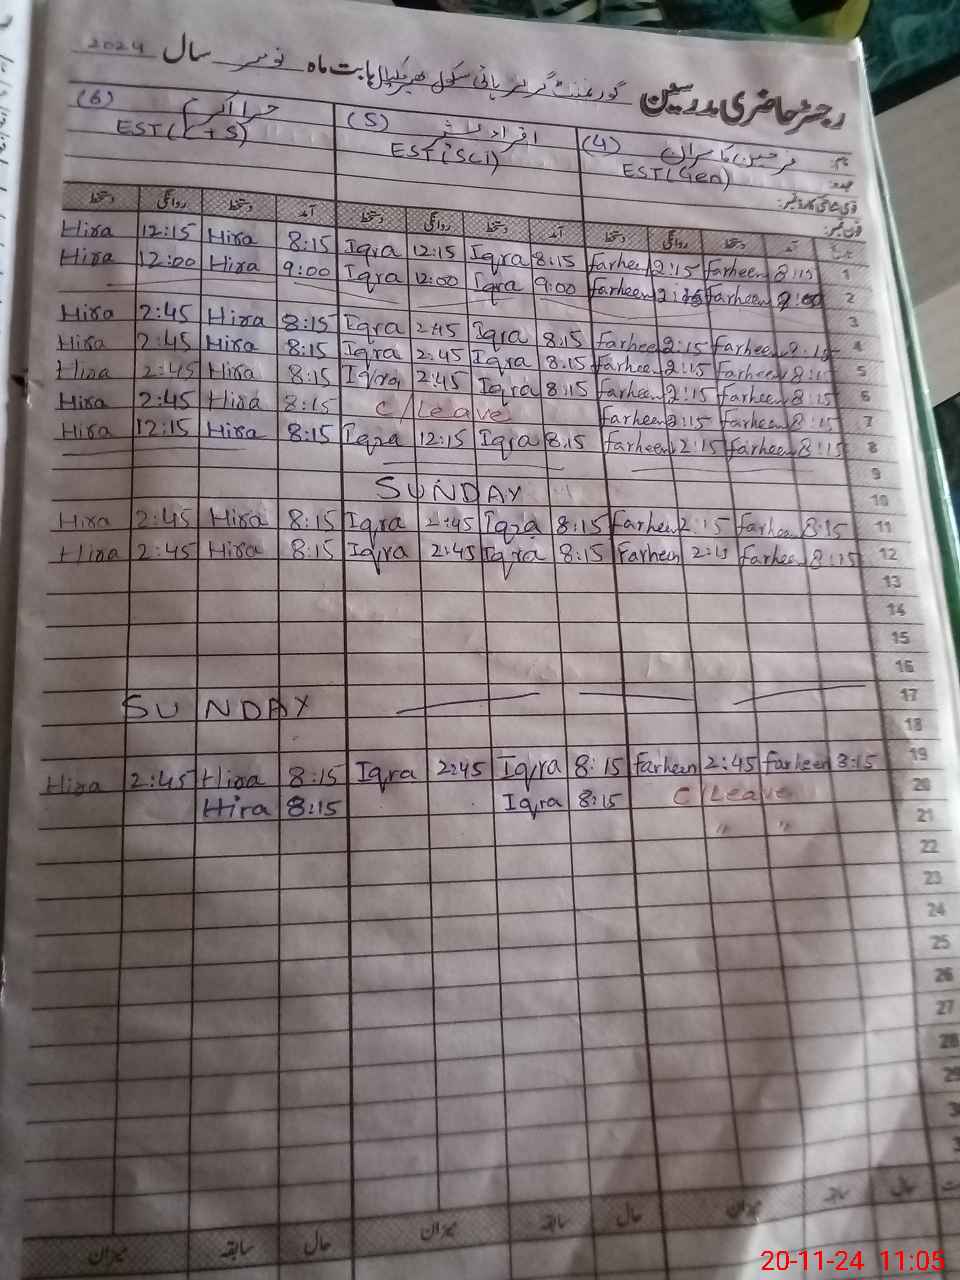 رجسٹر حاضری مدرسین گورنمنٹ گرلز ہائی سکول بابت ماہ نومبر سال 2024
نام: (4) (5) اقراء (6) حرا اکرم
عہدہ: EST(Gen) EST(Sci) EST(C+S)
فون نمبر:
آمد دستخط روانگی دستخط آمد دستخط روانگی دستخط آمد دستخط روانگی دستخط
Hira 12:15 Hira 8:15 Iqra 12:15 Iqra 8:15 Farheen 2:15 Farheen 8:15 1
Hira 12:00 Hira 9:00 Iqra 12:00 Iqra 9:00 Farheen Farheen 9:00 2
3
Hira 2:45 Hira 8:15 Iqra 2:45 Iqra 8:15 Farheen 2:15 Farheen 8:15 4
Hira 2:45 Hira 8:15 Iqra 2:45 Iqra 8:15 Farheen 2:15 Farheen 8:15 5
Hira 2:45 Hira 8:15 Iqra 2:45 Iqra 8:15 Farheen 2:15 Farheen 8:15 6
Hira 2:45 Hira 8:15 C/Leave Farheen 2:15 Farheen 8:15 7
Hira 12:15 Hira 8:15 Iqra 12:15 Iqra 8:15 Farheen 2:15 Farheen 8:15 8
9
SUNDAY 10
Hira 2:45 Hira 8:15 Iqra 2:45 Iqra 8:15 Farheen 2:15 Farheen 8:15 11
Hira 2:45 Hira 8:15 Iqra 2:45 Iqra 8:15 Farheen 2:15 Farheen 8:15 12
13
14
15
16
SUNDAY 17
18
19
Hira 2:45 Hira 8:15 Iqra 2:45 Iqra 8:15 Farheen 2:45 Farheen 8:15
Hira 8:15 Iqra 8:15 C/Leave 20
" " 21
22
23
24
25
26
27
28
29
حال سابقہ میزان حال سابقہ میزان حال سابقہ میزان
20-11-24 11:05